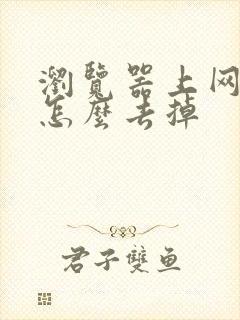 瀏覽器上网
怎麼去掉
君子雙鱼